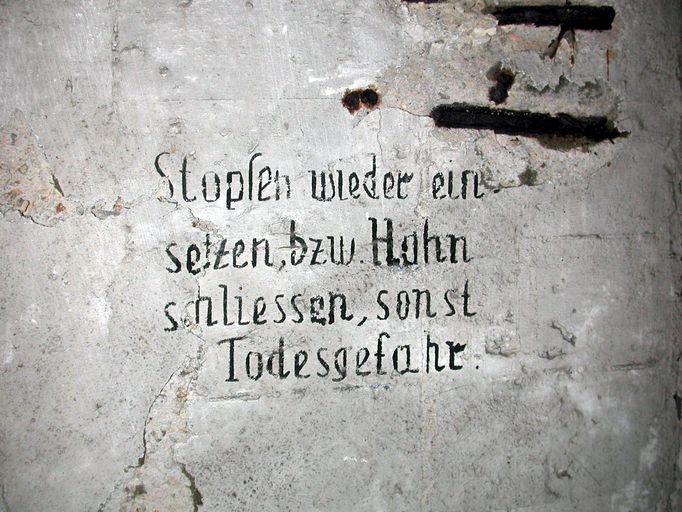 Stopfen wieder ein-
setzen, bzw. Hahn
schliessen, sonst
Todesgefahr.